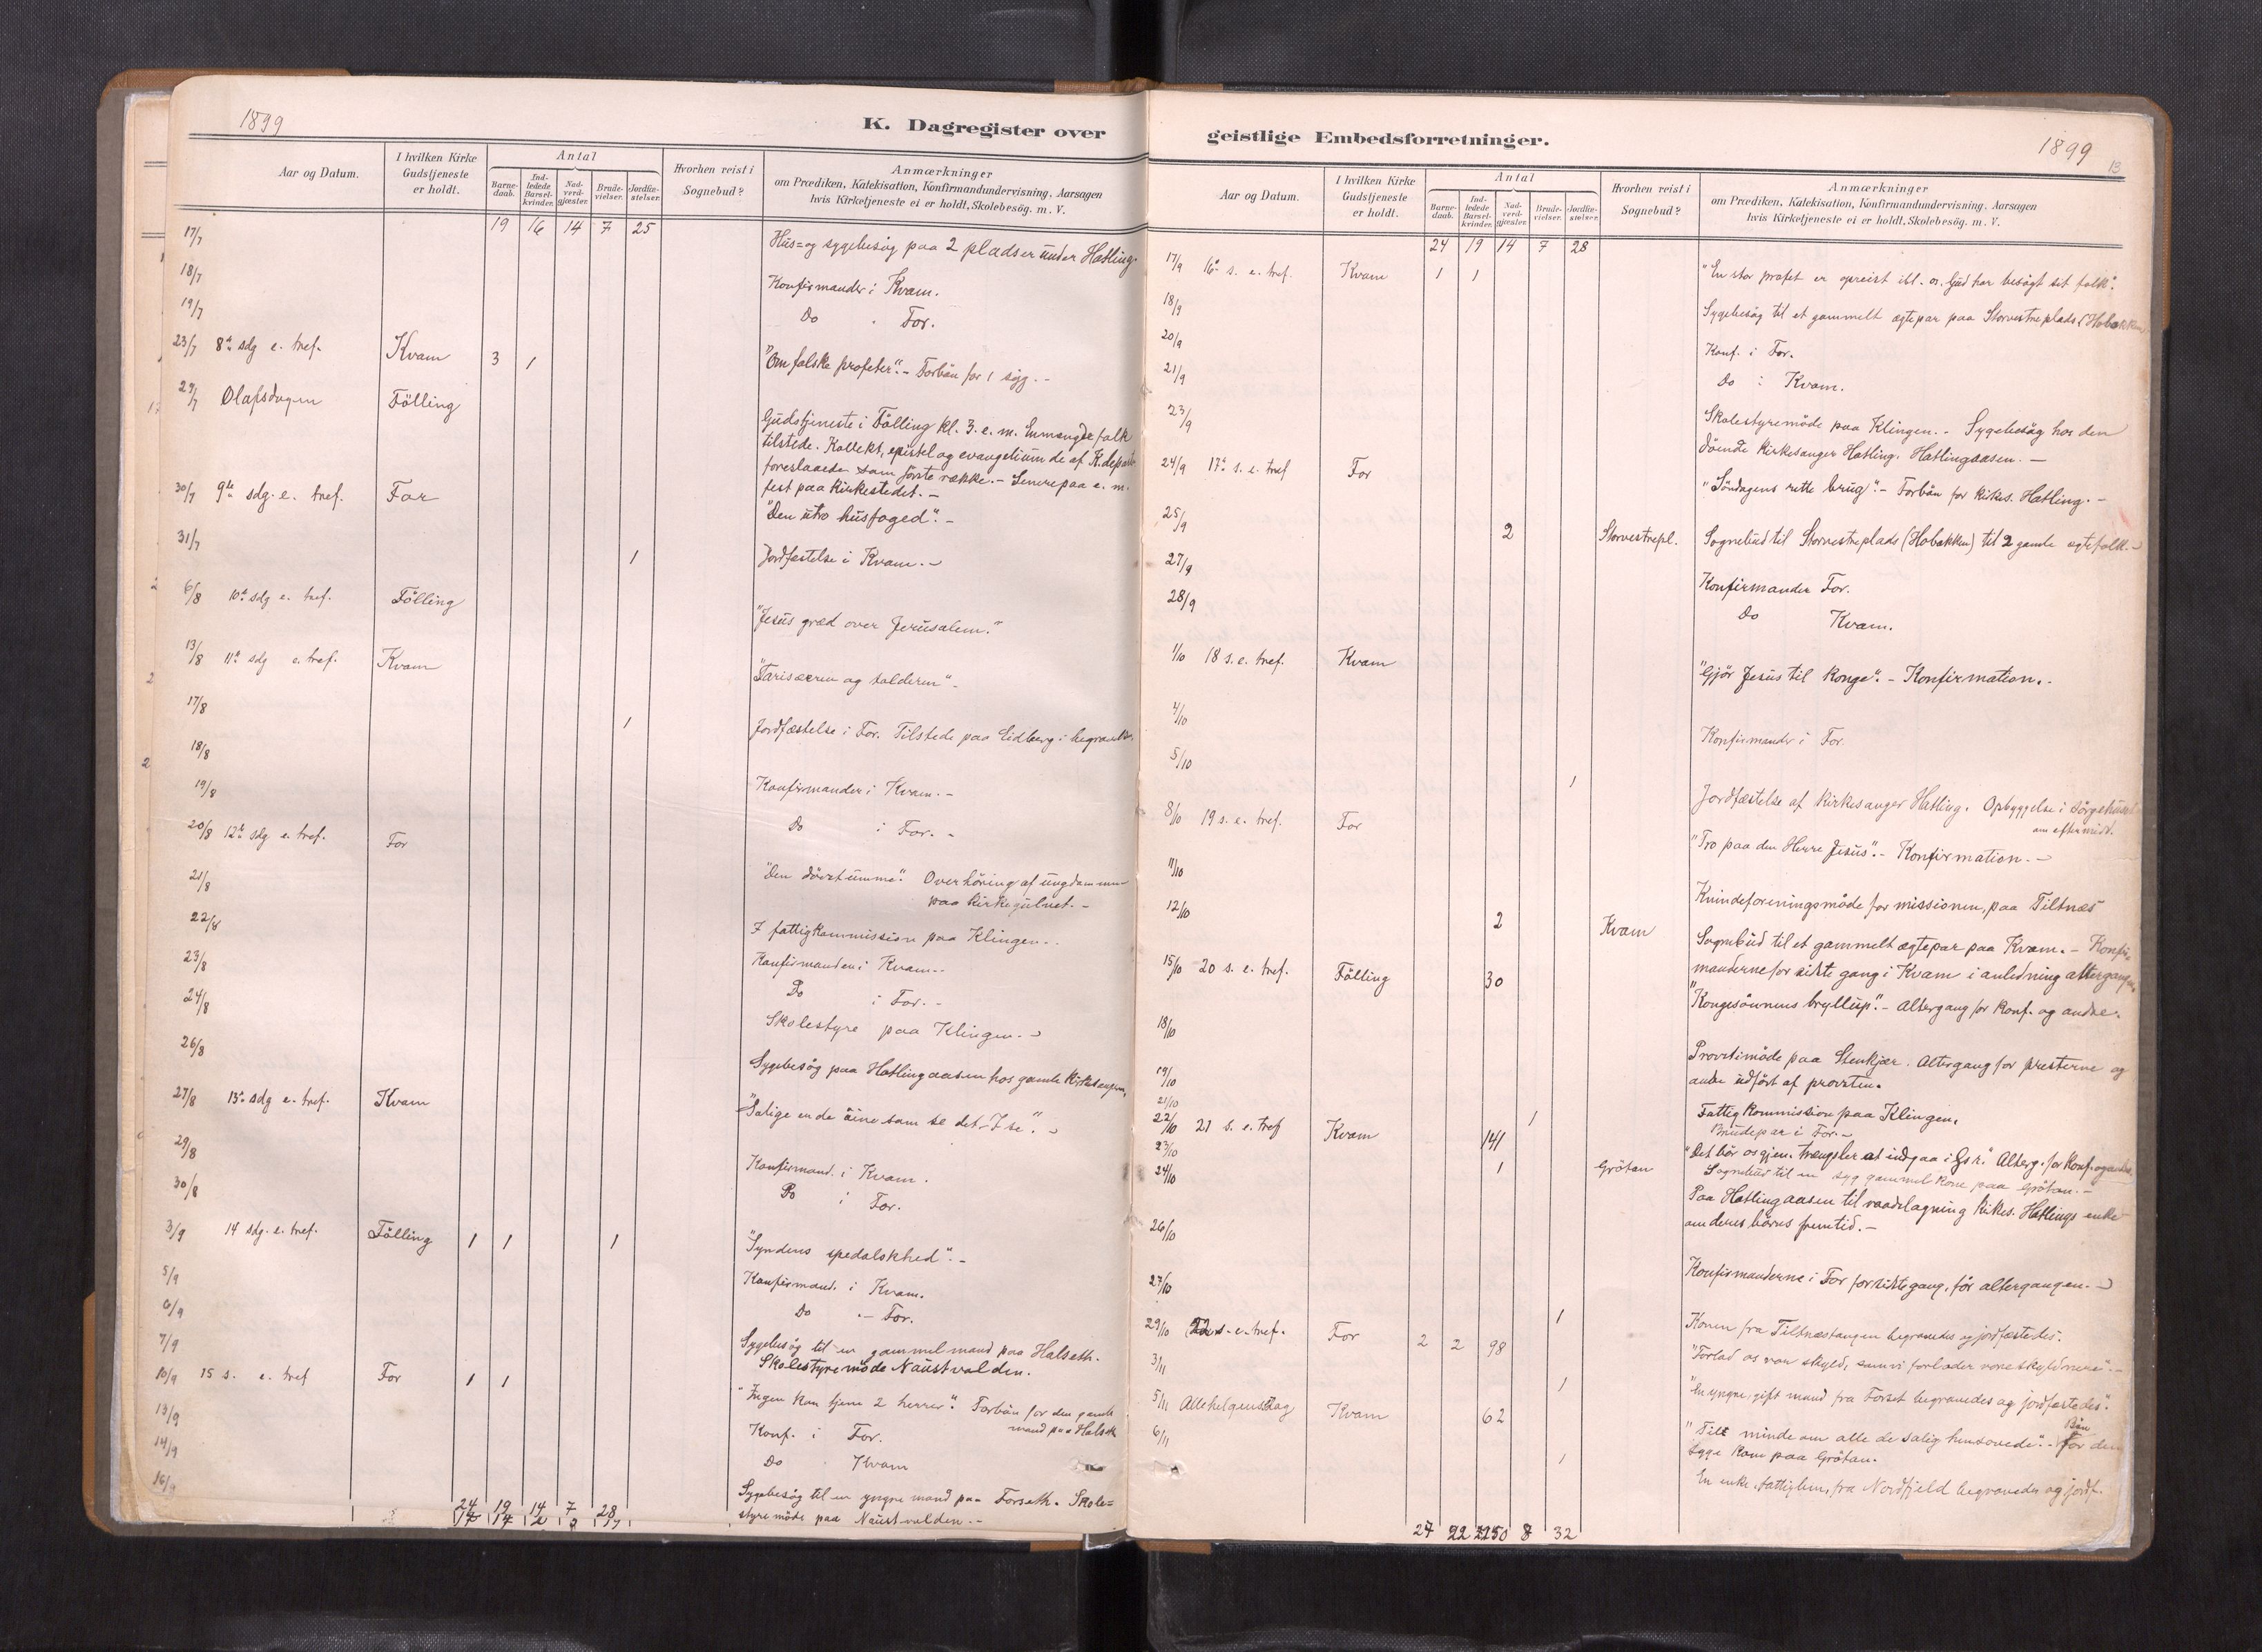 1899
K. Dagregister over
Aar og Datum.
I hvilken Kirke Gudstjeneste er holdt.
Antal
Barne-daab.
Ind-ledede Barsel-kvinder.
Nad-verd-gjæster.
Brude-vielser.
Jordfæ-stelser.
Hvorhen reist i Sognebud?
Anmærkninger
om Prædiken, Katekisation, Konfirmandundervisning, Aarsagen
hvis Kirketjeneste ei er holdt, Skolebesög. m. V.
19 16 14 7 25
17/7 Hus= og sygebesög paa 2 pladser under Hatling.
18/7 Konfirmander i Kvam.
19/7 Do For.
23/7 8de sdg e. tref. Kvam 3 1 "Om falske profeter". - Forbön for 1 syg. -
29/7 Olafsdagen Fölling Gudstjeneste i Fölling kl. 3. e. m. En mængde folk
tilstede. Kollekt, epistel og evangelium de af K. depart.
foreslaaede som förste række. - Senere paa e. m.
fest paa Kirkestedet. -
30/7 9de sdg. e. tref. For "Den utro husfoged". -
31/7 1 Jordfæstelse i Kvam. -
6/8 10de sdg e. tref. Fölling "Jesus græd over Jerusalem."
13/8 11te sdg e. tref. Kvam "Farisæeren og tolderen". -
17/8 1 Jordfæstelse i For. Tilstede paa Eidberg i begravelse.
18/8 Konfirmander i Kvam. -
19/8 Do i For. -
20/8 12te sdg e. tref. For "Den dövstumme". Overhöring af ungdommen
paa kirkegulvet. -
21/8 I fattigkommission paa Klingen. -
22/8 Konfirmander i Kvam. -
23/8 Do i For. -
24/8 Skolestyre paa Klingen. -
26/8 Sygebesög paa Hatlingaasen hos gamle Kirkesanger.
27/8 13de sdg e. tref. Kvam "Salige er de öine som se det I se". -
29/8 Konfirmand. i Kvam.
30/8 Do i For.
3/9 14 sdg. e. tref. Fölling 1 1 1 "Syndens spedalskhed". -
5/9 Konfirmand. i Kvam.
6/9 Do - For.
7/9 Sygebesög til en gammel mand paa Halseth.
Skolestyremöde Naustvolden.
10/9 15 s. e. tref For 1 1 "Ingen kan tjene 2 herrer". Forbön for den gamle
mand paa Halseth
13/9 Konf. i For.
14/9 Do Kvam
16/9 Sygebesög til en yngre mand paa Forseth. Skole=
styremöde paa Naustvolden. -
24 19 14 7 28
geistlige Embedsforretninger.
1899
13
Aar og Datum.
I hvilken Kirke Gudstjeneste er holdt.
Antal
Barne-daab.
Ind-ledede Barsel-kvinder.
Nad-verd-gjæster.
Brude-vielser.
Jordfæ-stelser.
Hvorhen reist i Sognebud?
Anmærkninger
om Prædiken, Katekisation, Konfirmandundervisning, Aarsagen
hvis Kirketjeneste ei er holdt, Skolebesög. m. V.
24 19 14 7 28
17/9 16de s. e. tref. Kvam 1 1 "En stor profet er opreist ibl. os. Gud har besögt sit folk".
18/9 Sygebesög til et gammelt ægtepar paa Storvestreplads (Hobakken
20/9 Konf. i For.
21/9 Do i Kvam.
23/9 Skolestyremöde paa Klingen. - Sygebesög hos den
döende Kirkesanger Hatling. Hatlingaasen. -
24/9 17de s. e. tref For "Söndagens rette brug". - Forbön for kirkes. Hatling. -
25/9 2 Storvestrepl. Sognebud til Storvestreplads (Hobakken) til 2 gamle ægtefolk. -
27/9 Konfirmander For.
28/9 Do Kvam.
1/10 18 s. e. tref. Kvam "Gjör Jesus til Konge". - Konfirmation. -
4/10 Konfirmander i For
5/10 1 Jordfæstelse af Kirkesanger Hatling. Opbyggelse i sörgehuset
om eftermidd.
8/10 19 s. e. tref. For "Tro paa den Herre Jesus". - Konfirmation. -
11/10 Kvindeforeningsmöde for missionen, paa Tiltnæs
12/10 2 Kvam Sognebud til et gammelt ægtepar paa Kvam. - Konfir=
manderne for sidste gang i Kvam i anledning altergangen.
15/10 20 s. e. tref. Fölling 30 "Kongesönnens bryllup". - Altergang for Konf. og andre.
18/10 Provstimöde paa Stenkjær. Altergang for presterne og
andre udfört af provsten.
19/10 Fattigkommission paa Klingen.
21/10 1 Brudepar i For. -
22/10 21 s. e. tref Kvam 141 "Det bör os gjen. trængsler at indgaa i Gs r." Alterg. for Konf. og andre.
23/10 1 Grötan Sognebud til en syg gammel kone paa Grötan. -
24/10 Paa Hatlingaasen til raadslagning Kirkes. Hatlings enke
om deres börns fremtid. -
26/10 Konfirmanderne i For for sidste gang, för altergangen. -
27/10 1 Konen fra Tiltnæstangen begravedes og jordfæstedes.
29/10 22 s. e. tref. For 2 2 98 "Forlad os vor skyld, som vi forlader vore skyldnere". -
3/11 1 En yngre, gift mand fra Forset begravedes og jordfæstedes.
5/11 Allehelgensdag Kvam 62 "Til minde om alle de salig hensovede". - Bön for den
syge kone paa Grötan.
6/11 1 En enke, fattiglem, fra Nordfjeld begravedes og jordf.
27 22 350 8 32